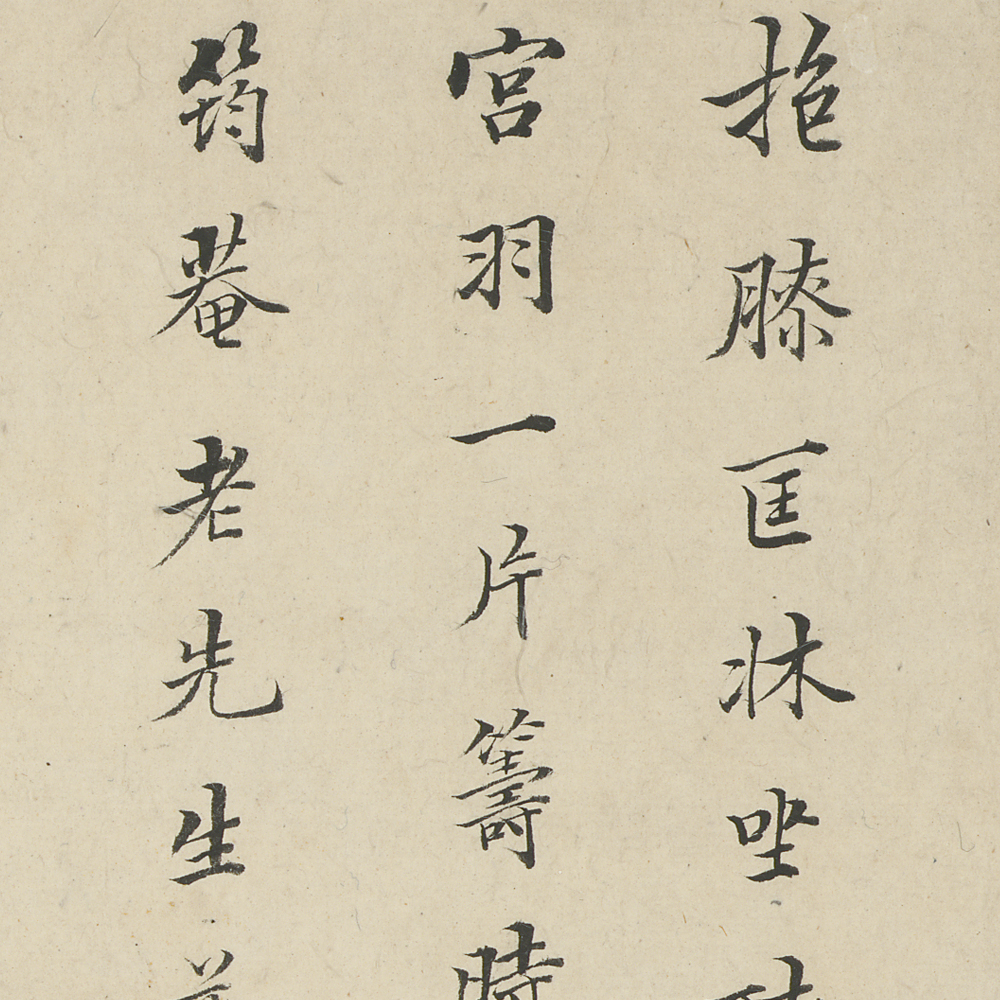 抱膝匡牀坐
宮羽一片籌時
筠菴老先生